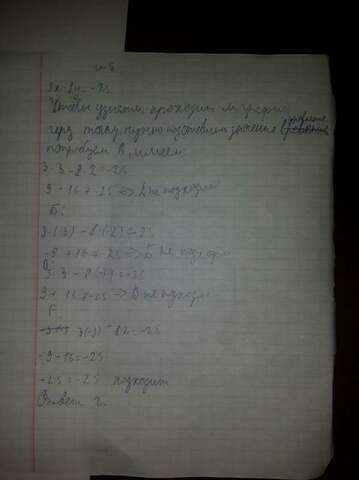 n-8
3x-8y=-25
Чтобы узнать, проходит ли график
через точку, нужно подставить значения
попробуем А, имеем:
3·3-8·2=-25
9-16≠-25 => А не подходит
Б:
3·(-3)-8·(-2)=-25
-9+16≠-25 => Б не подходит
В:
3·3-8(-2)=-25
9+16≠-25 => В не подходит
Г:
3(-3)-8·2=-25
-9-16=-25
-25=-25 подходит
Ответ Г.